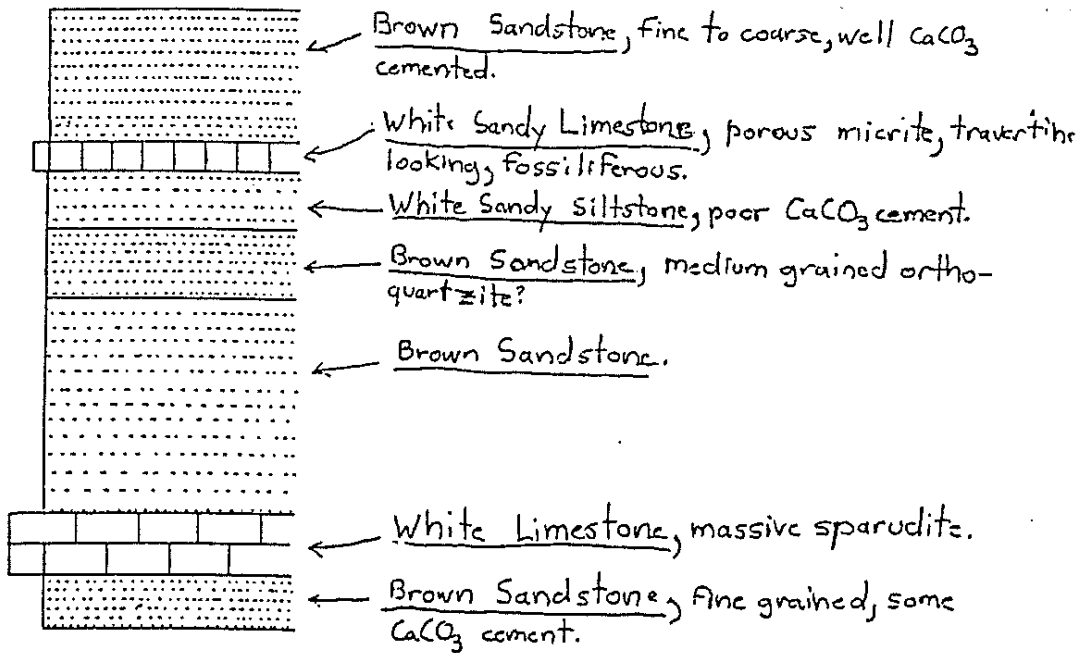 Brown Sandstone, fine to coarse, well CaCO₃
cemented.
White Sandy Limestone, porous micrite, travertine
looking, fossiliferous.
White Sandy Siltstone, poor CaCO₃ cement.
Brown Sandstone, medium grained ortho-
quartzite?
Brown Sandstone.
White Limestone, massive sparudite.
Brown Sandstone, fine grained, some
CaCO₃ cement.